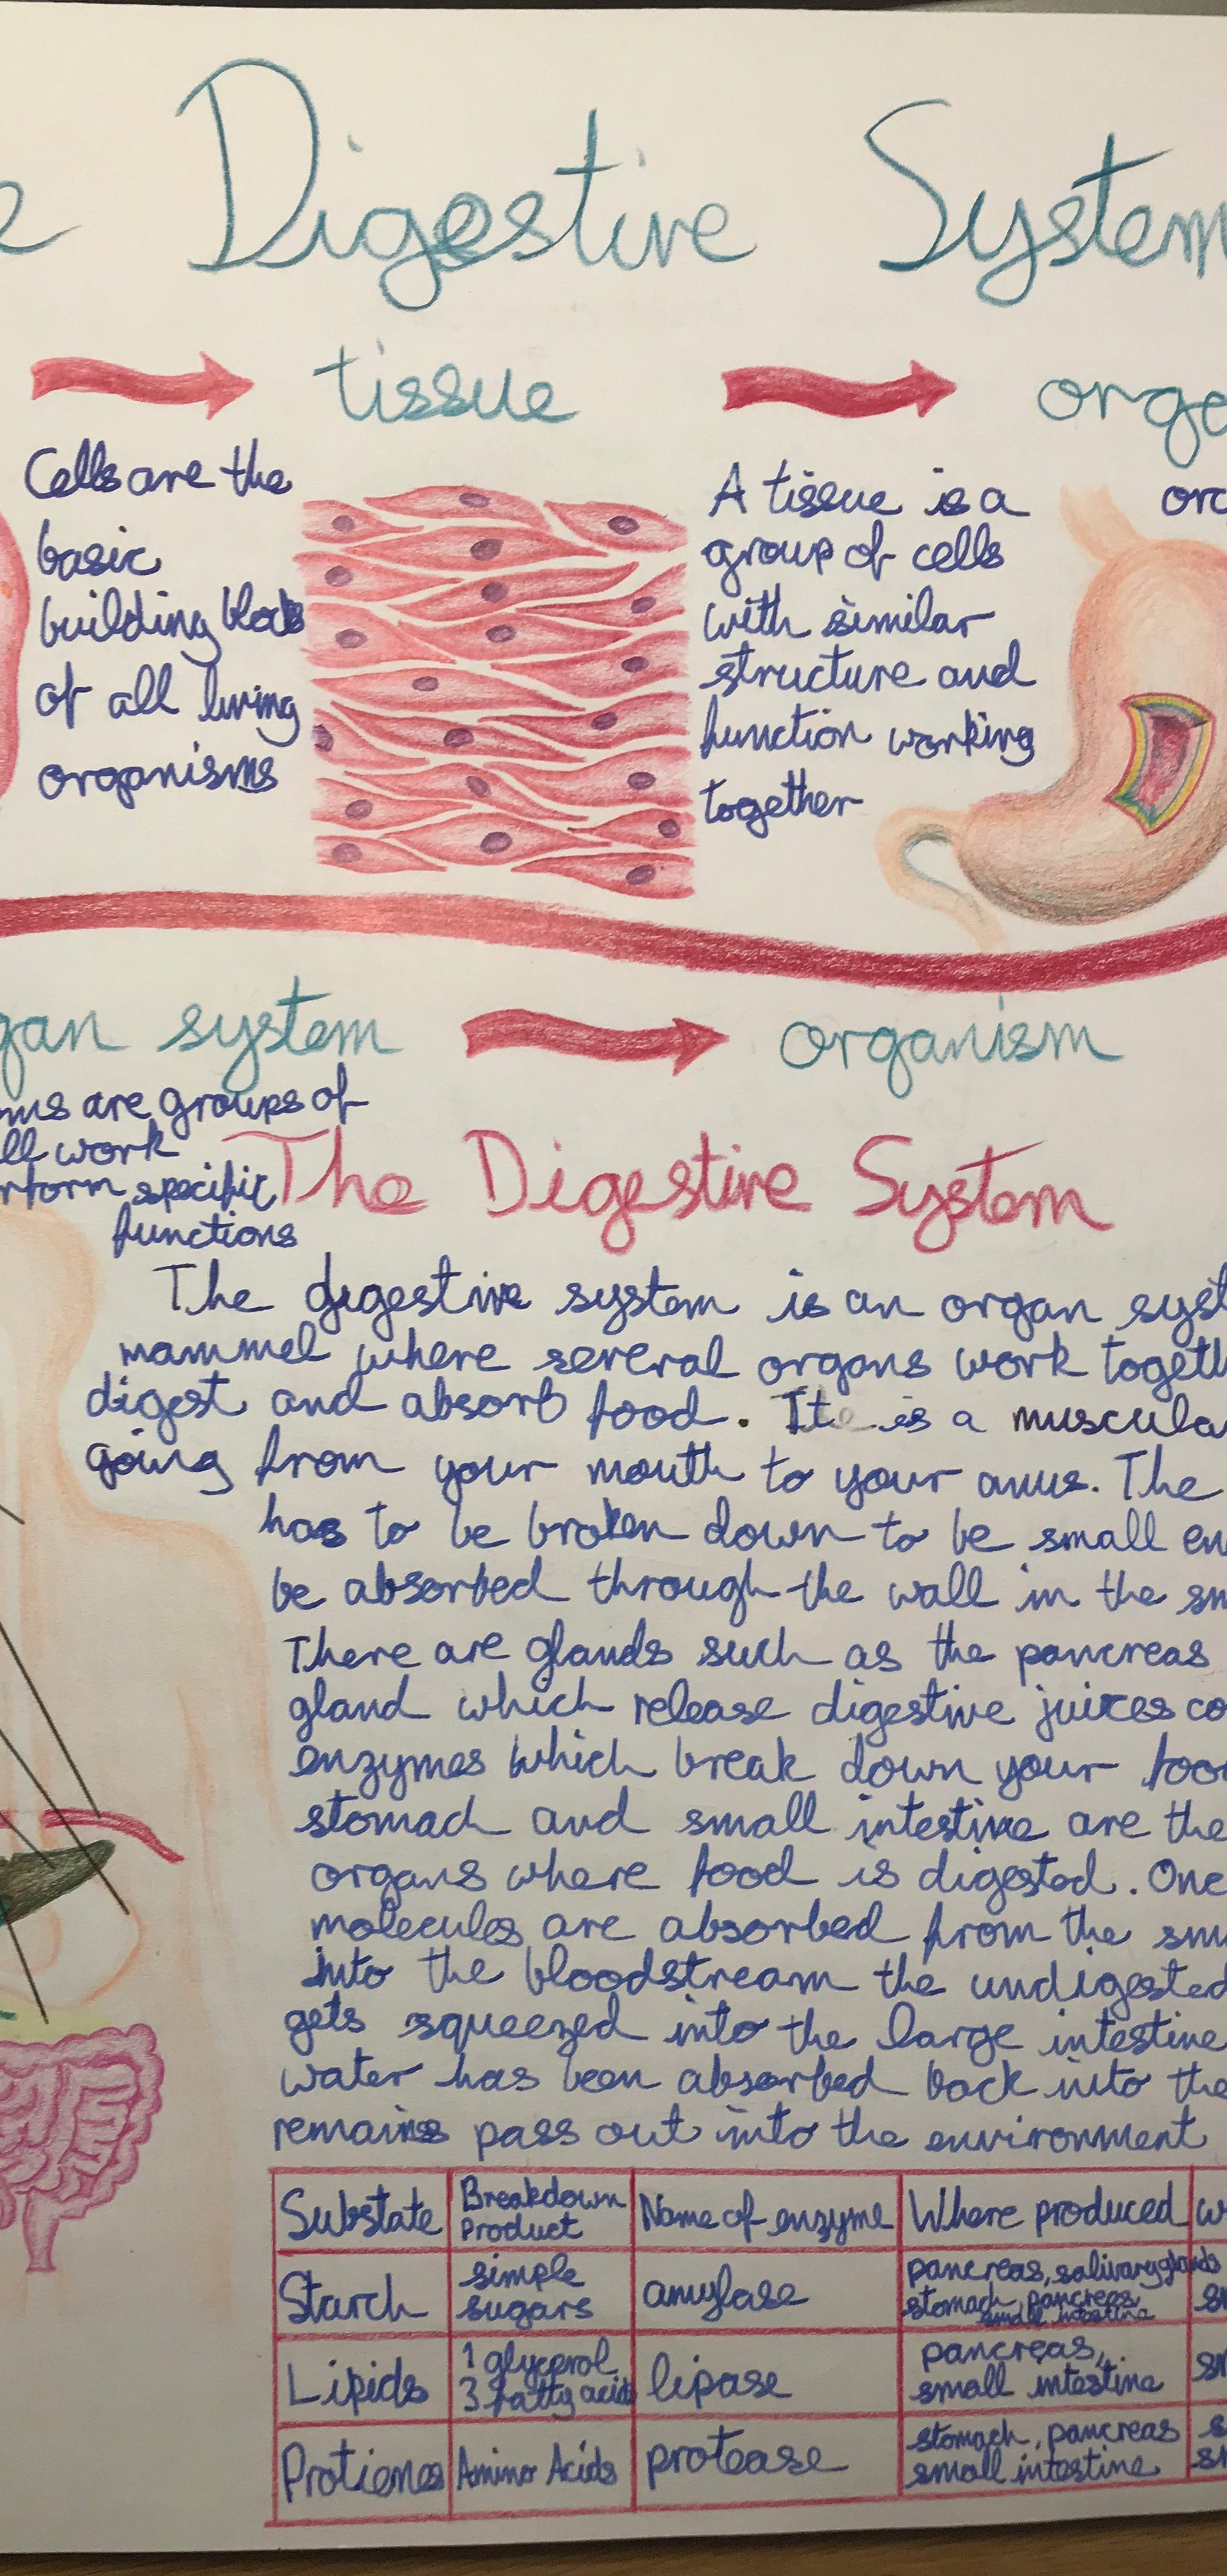 Digestive System
tissue
Cells are the
basic
building blocks
of all living
organisms
A tissue is a
group of cells
with similar
structure and
function working
together
system
organism
are groups of
work
specific
functions
The Digestive System
The digestive system is an organ
mammel where several organs work
digest and absorb food. It is a
going from your mouth to your anus. The
has to be broken down to be small
be absorbed through the wall in the
There are glands such as the pancreas
gland which release digestive juices
enzymes which break down your
stomach and small intestine are the
organs where food is digested.
molecules are absorbed from the
into the bloodstream the undigested
gets squeezed into the large intestine
water has been absorbed back into the
remains pass out into the environment
Substate Breakdown Product Name of enzyme Where produced
Starch simple sugars amylase pancreas, salivary glands stomach, pancreas small intestine
Lipids 1 glycerol 3 fatty acids lipase pancreas, small intestine
Protienes Amino Acids protease stomach, pancreas small intestine